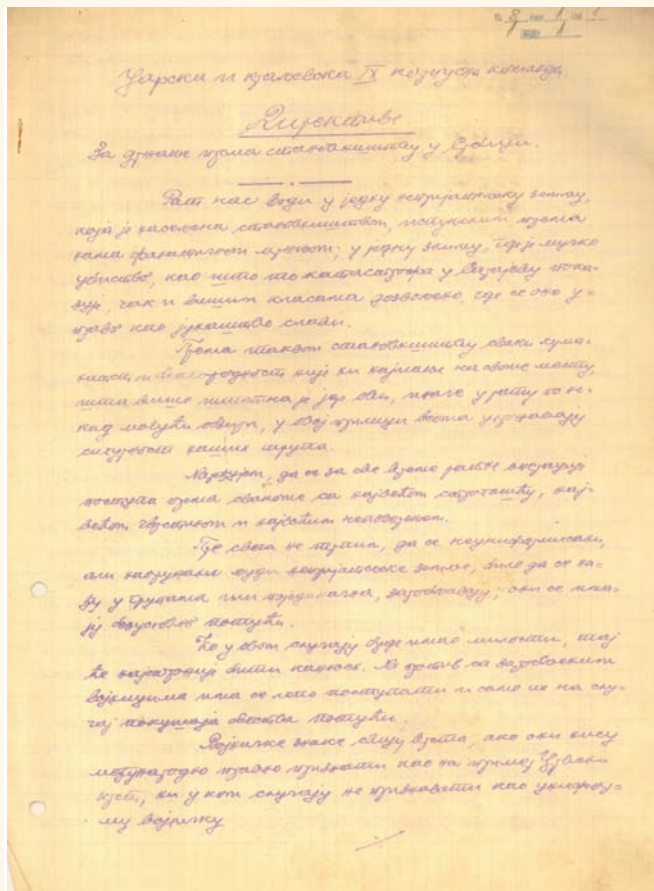 Царска и краљевска IX корпусна команда
Директиве
За држање према становништву у Србији.
Рат нас води у једну непријатељску земљу,
која је насељена становништвом, испуњеним према
нама фанатичном мржњом; у једну земљу, где је мучко
убиство, као што то катастрофа у Сарајеву пока-
зује, чак и вишим класама дозвољено, где се оно у-
право као јунаштво слави.
Према таквом становништву свака хума-
ност и благородност није ни најмање на своме месту,
шта више штетна је, јер ови, иначе у рату по не-
кад могући обзири, у овој прилици веома угрожавају
сигурност наших трупа.
Наређујем, да се за све време ратне операције
поступа према свакоме са највећом строгошћу, нај-
већом чврстином и највећим неповерењем.
Пре свега не трпим, да се неунифор­мисани,
али наоружани људи непријатељске земље, било да се на-
ђу у групама или поједи­начно, заробљавају; они се има-
ју безусловно потући.
Ко у овом случају буде имао милости, тај
ће најстрожије бити кажњен. На против са заробљеним
војницима има се лепо поступати и само их на слу-
чај покушаја бегства потући.
Војничке знаке ове врсте, ако они нису
међународно правно признати као на пример
ни у ком случају не признавати као унифор-
му војничку